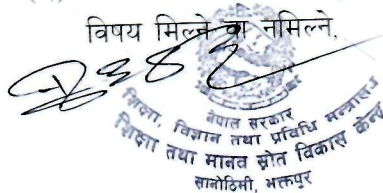 विषय मिल्ने वा नमिल्ने,
नेपाल सरकार
शिक्षा, विज्ञान तथा प्रविधि मन्त्रालय
शिक्षा तथा मानव स्रोत विकास केन्द्र
सानोठिमी, भक्तपुर